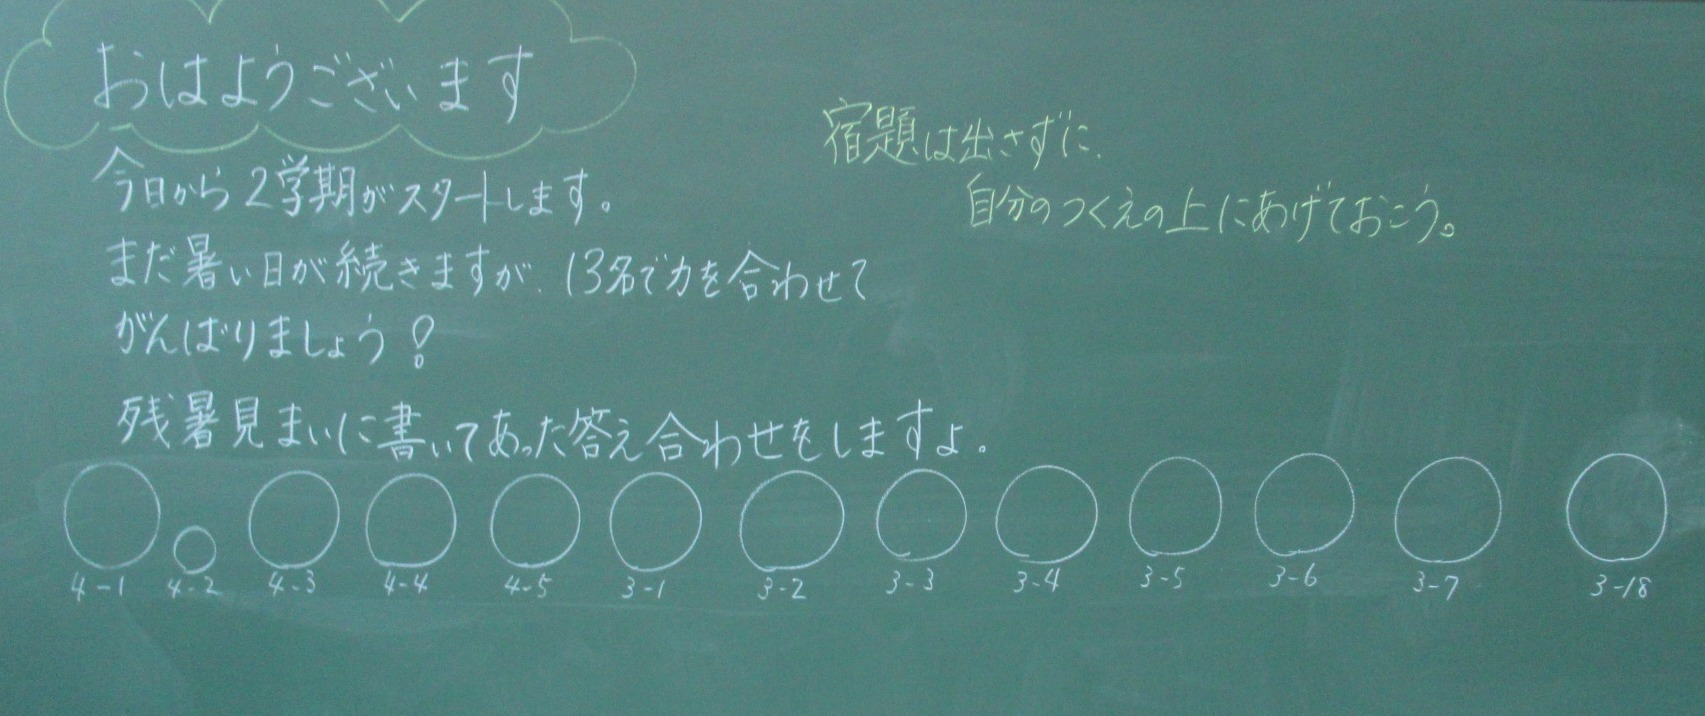 おはようございます
今日から2学期がスタートします。
まだ暑い日が続きますが、13名で力を合わせて
がんばりましょう!
宿題は出さずに、
自分のつくえの上にあげておこう。
残暑見まいに書いてあった答え合わせをしますよ。
4-1 4-2 4-3 4-4 4-5 3-1 3-2 3-3 3-4 3-5 3-6 3-7 3-18